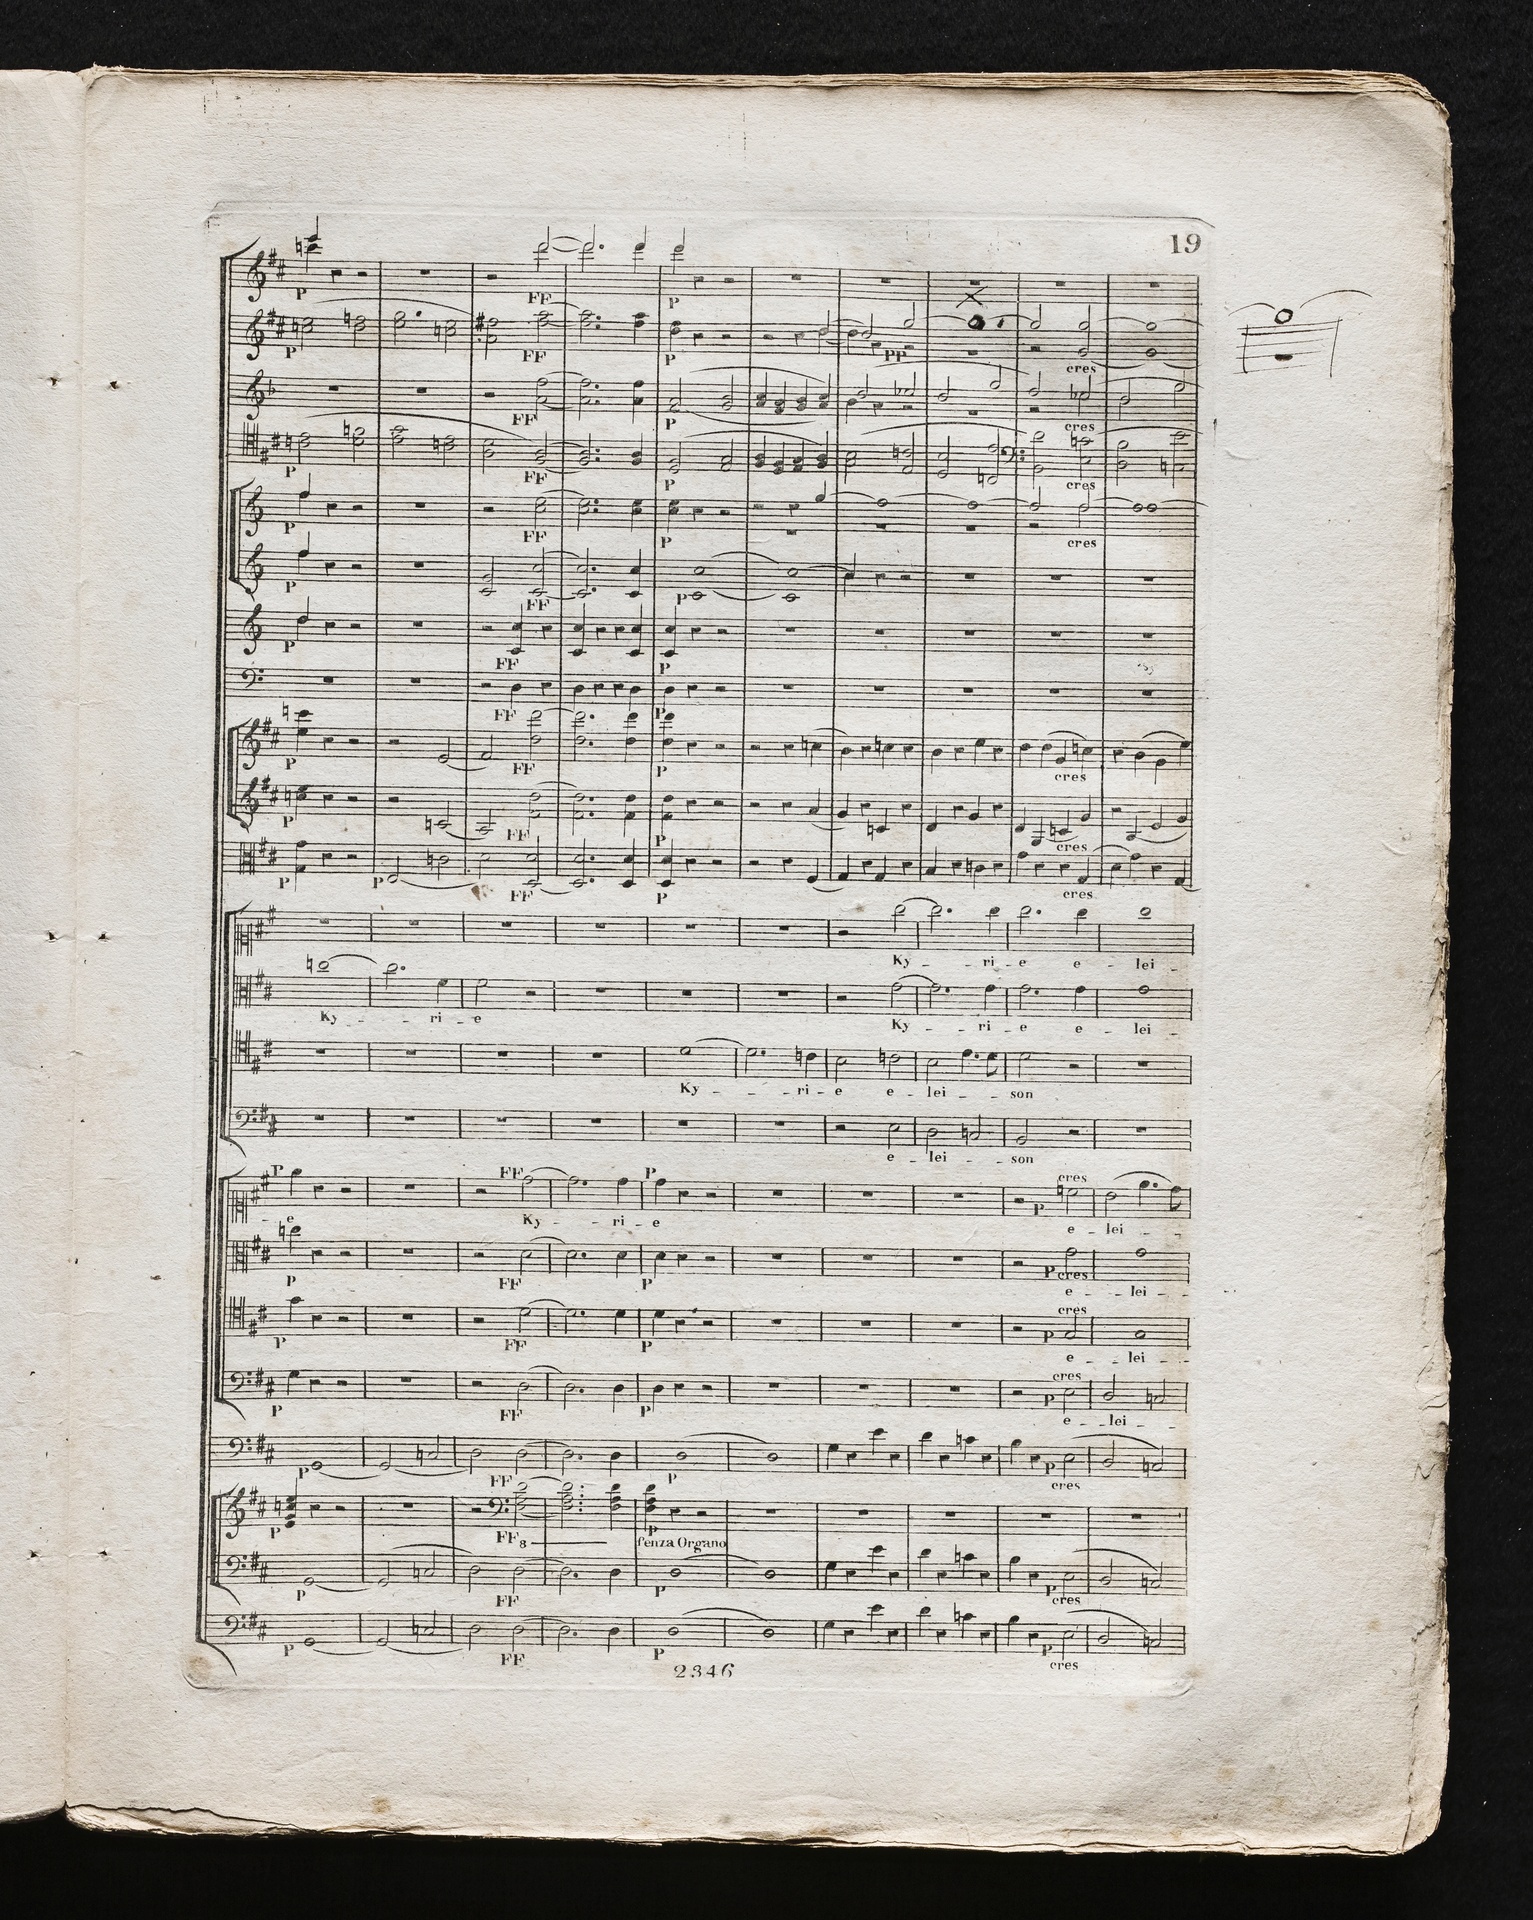 19
P
FF
P
P
FF
P
PP
cres
FF
P
cres
P
FF
P
cres
P
FF
P
cres
P
FF
P
P
FF
P
FF
P
P
FF
P
cres
P
FF
P
cres
P
P
FF
P
cres
Ky - - ri - e e - lei -
Ky - - - ri - e
Ky - - ri - e e - lei -
Ky - - - ri - e e - lei - - son
e - lei - - son
P
FF
P
cres
P
- e
Ky - - - ri - e
e - lei - -
P
FF
P
P cres
e - - lei -
cres
P
FF
P
P
e - - lei - -
cres
P
FF
P
P
e - - lei - -
P
FF
P
P
cres
P
FF
8
P
senza Organo
P
FF
P
P
cres
P
FF
P
P
cres
2346